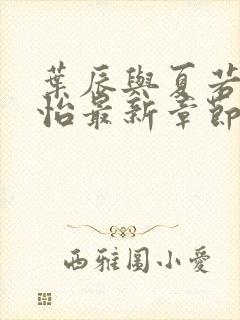 葉辰與夏若
怡最新章節
西雅圖小愛